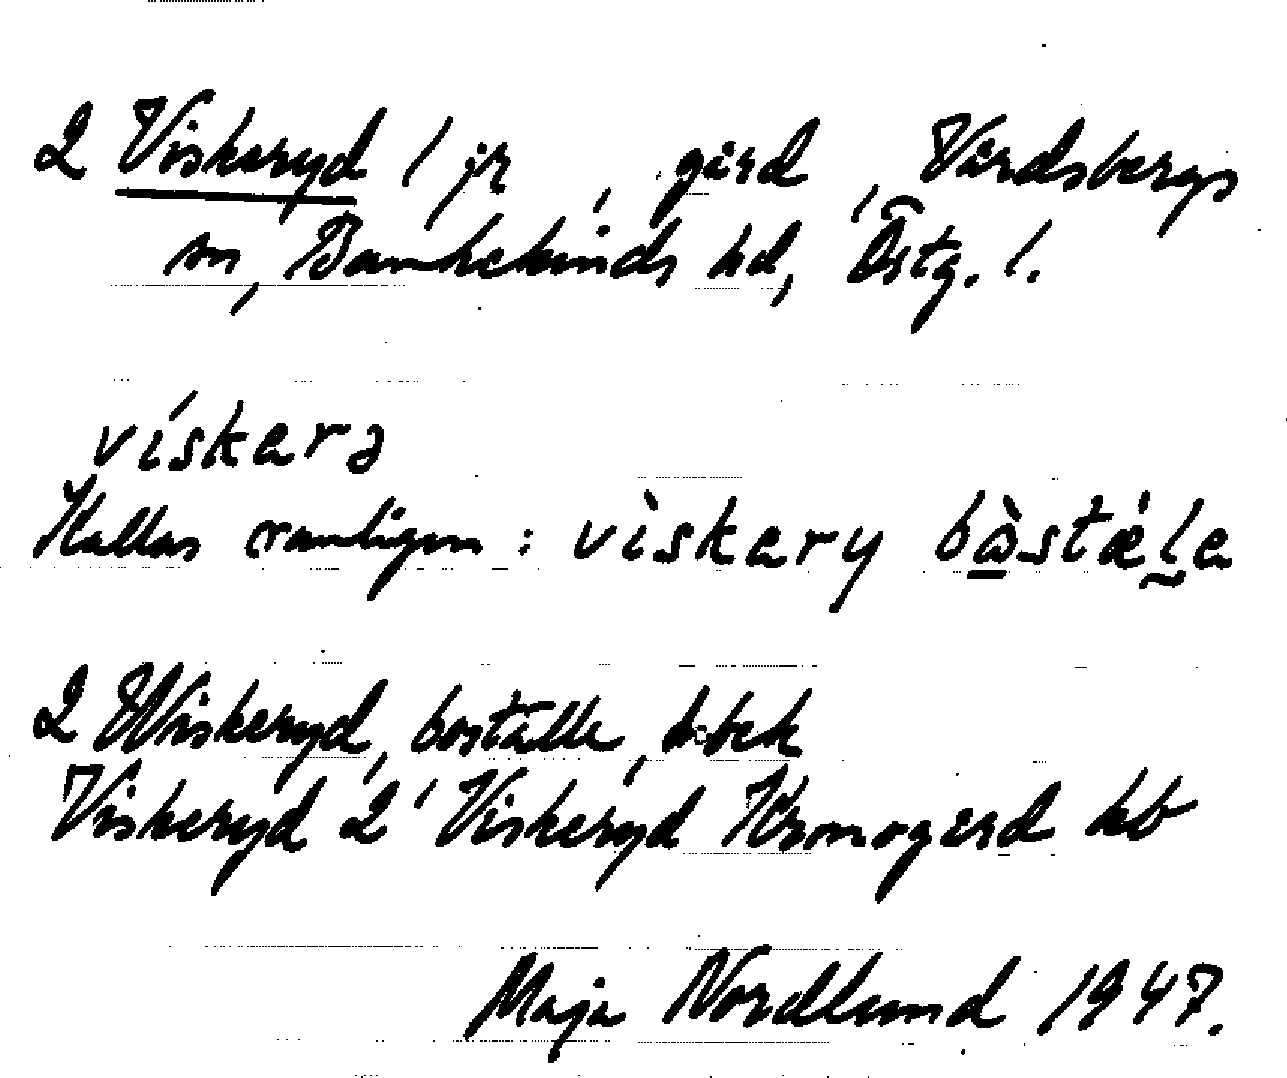 2 Viskeryd / jr, gård, Vårdsbergs
sn, Bankekinds hd, Östg. l.
vískarə
Kallas vanligen: vìskary bòstǽla
2 Wiskeryd, boställe, k:bck
Viskeryd 2' Viskeryd Kronogård kb
Maja Nordlund 1947.